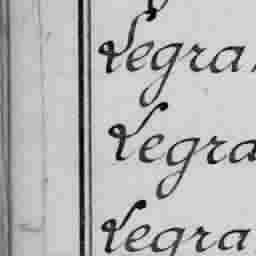 Legra
Legra
Legra